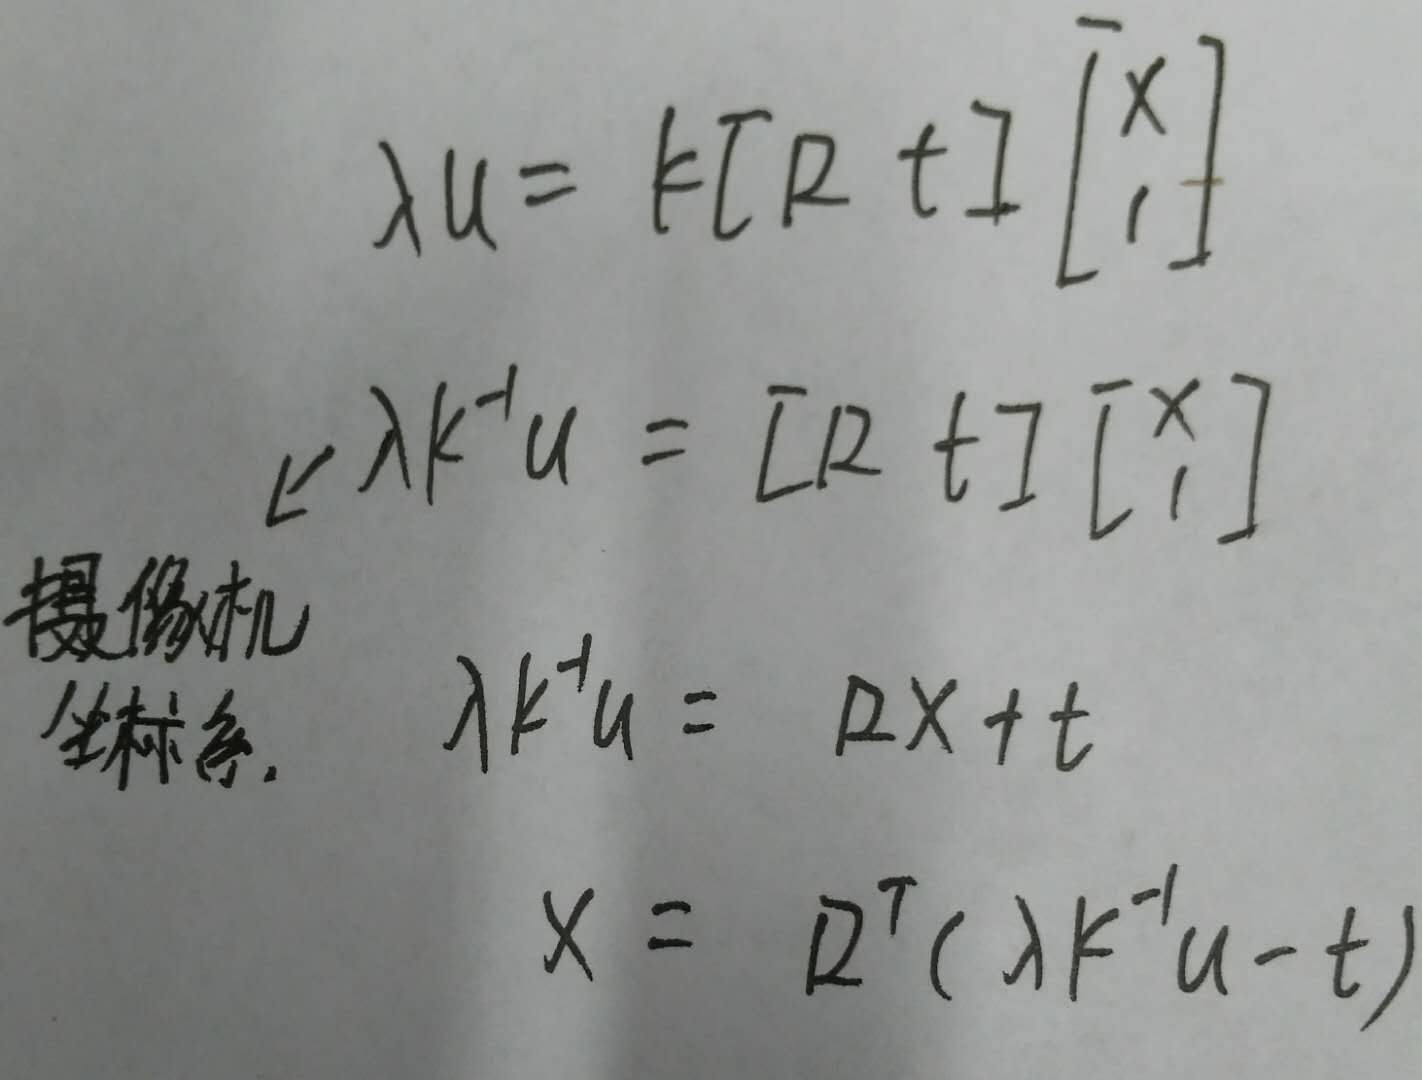 λu = k[R t] [x 1]
λk⁻¹u = [R t] [x 1]
摄像机
坐标系.
λk⁻¹u = Rx + t
x = Rᵀ(λk⁻¹u - t)